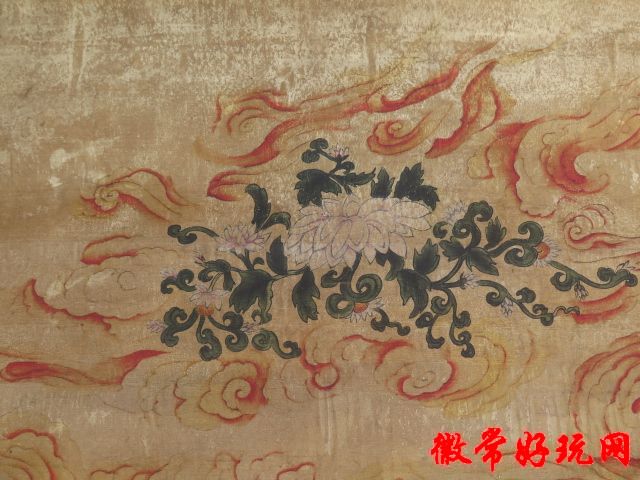 徽常好玩网